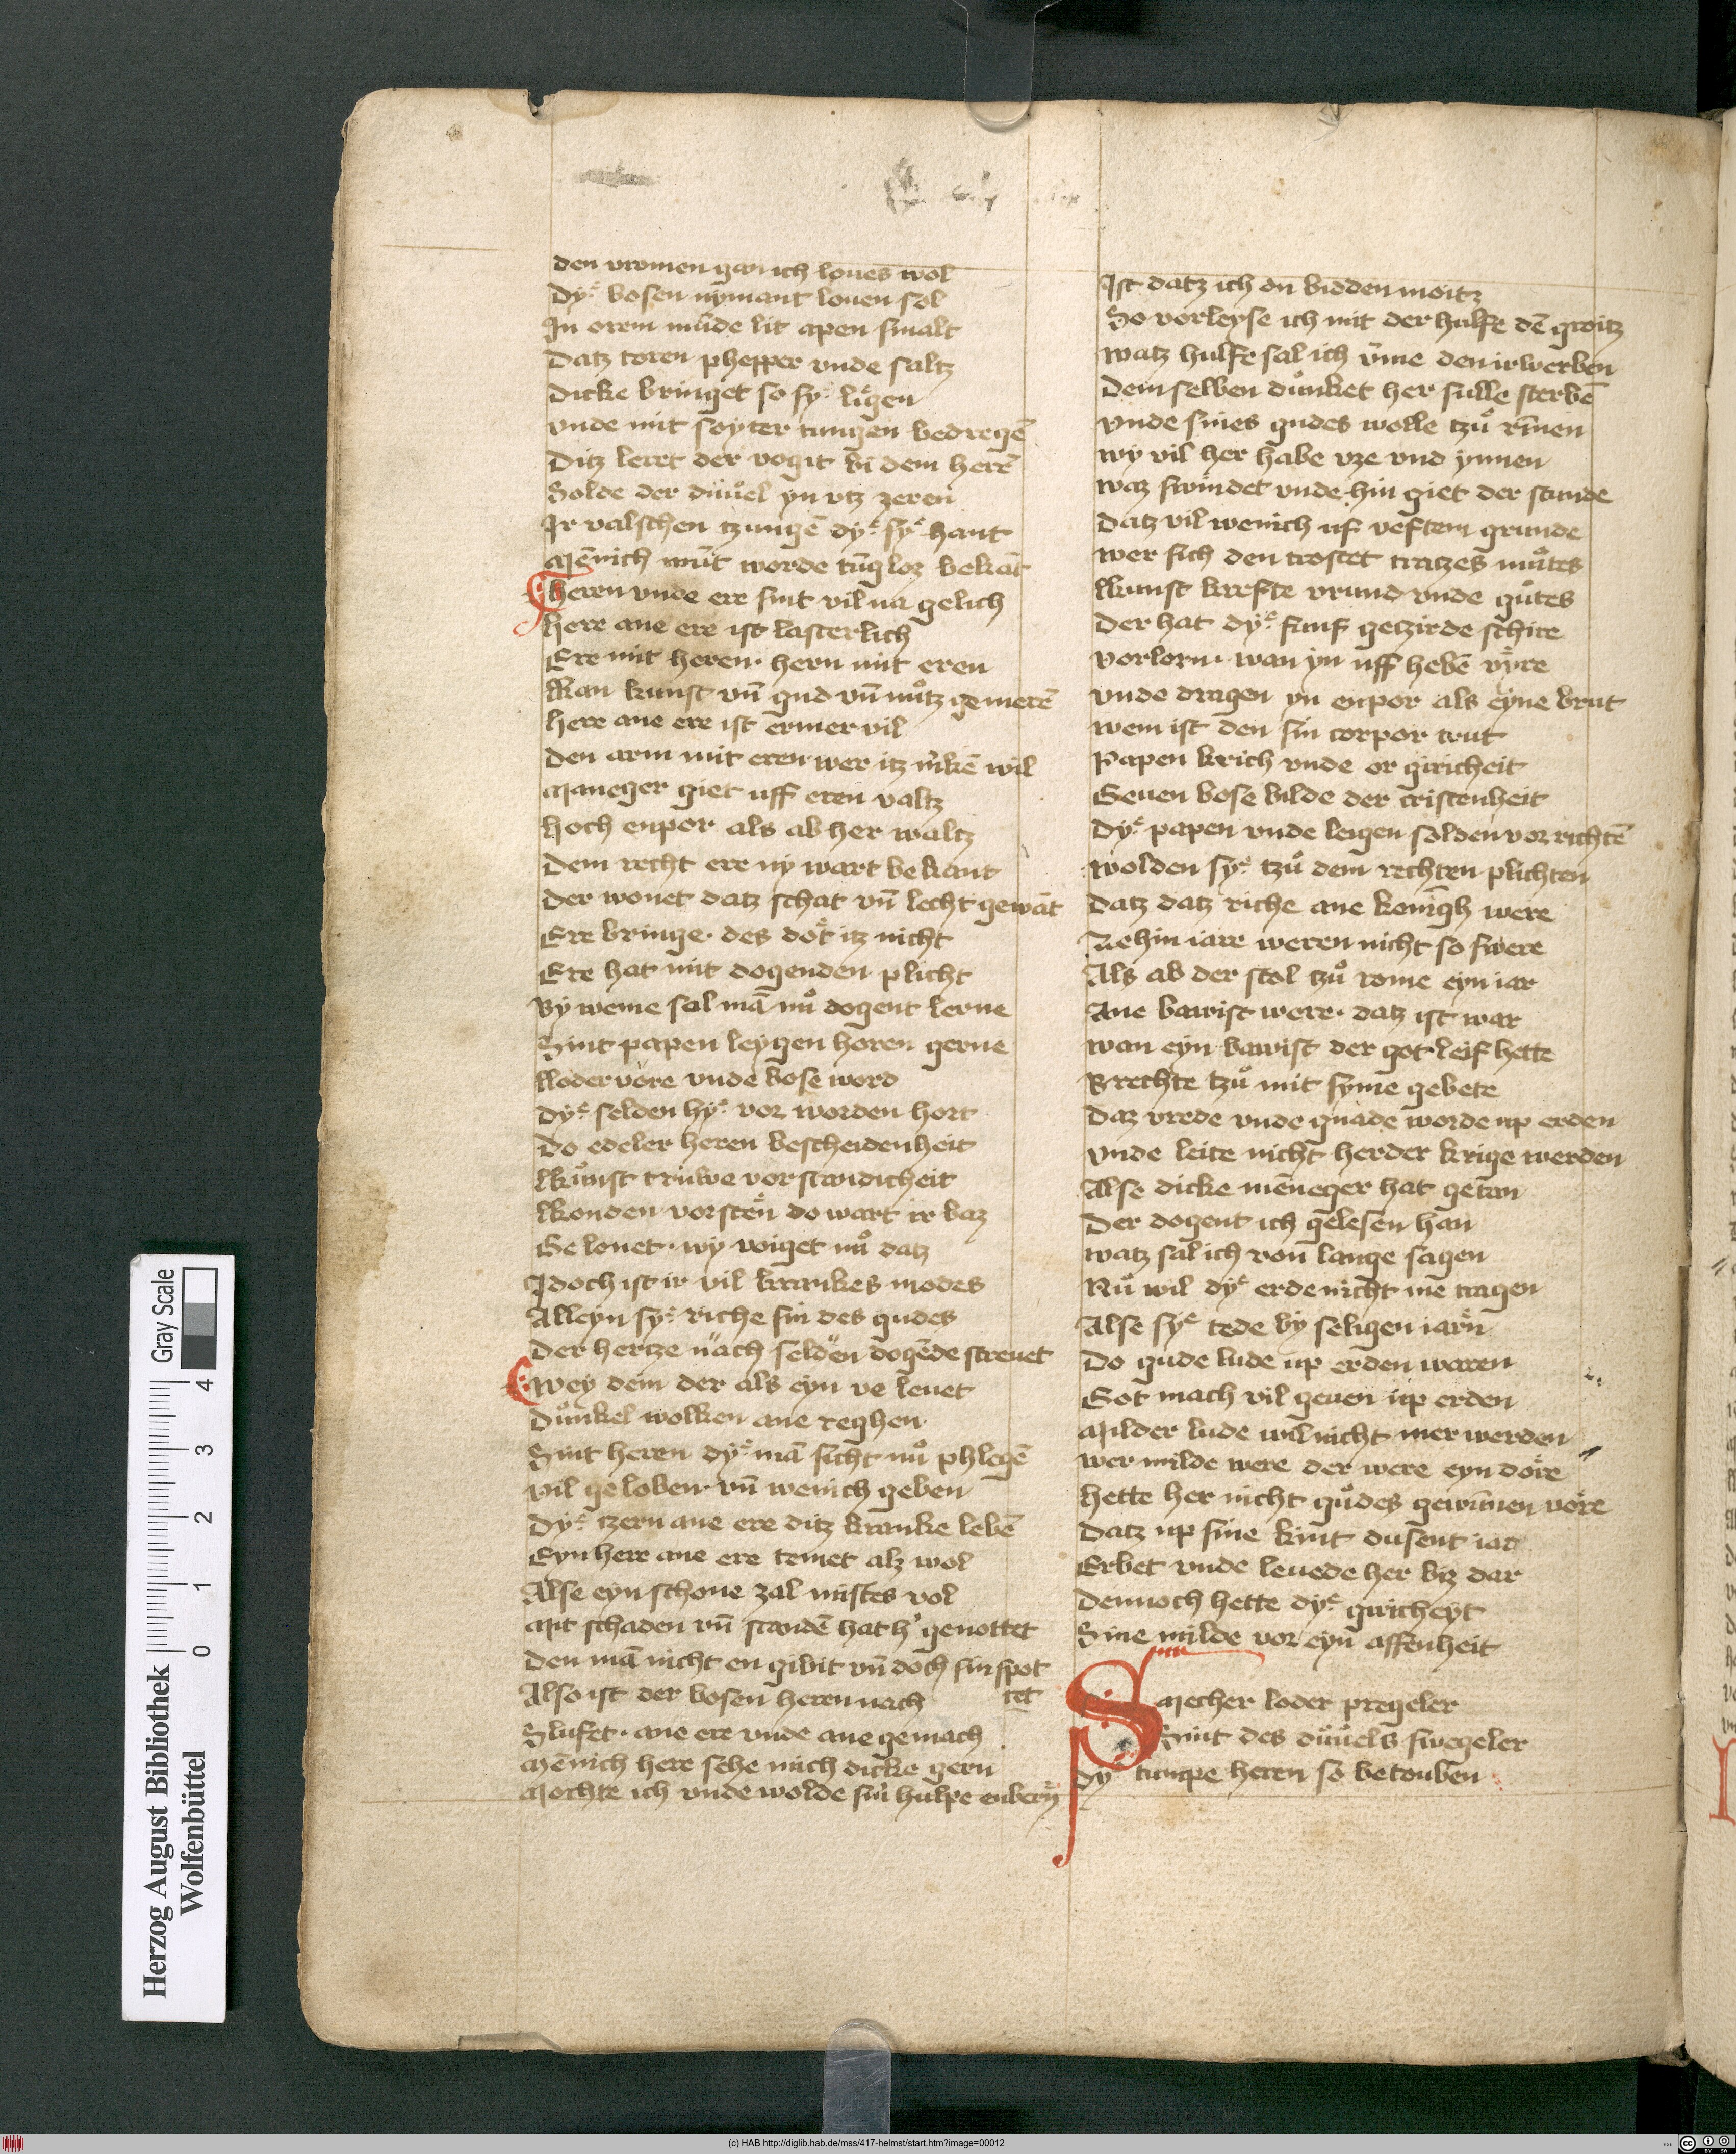 den vromen gan ich loues wol
Dyͤ bosen nymant louen sol
In orem mūde lit apen smalt
Datz toren phepper vnde saltz
Dicke bringet so syͤ ligen
vnde mit soyter tungen bedregē
Ditz leret der vogit bi dem herē
Solde der duͤuel yn vtz zeren
Ir valschen tzungē dyͤ syͤ hant
Mēnich mūt worde tūgloz bekāt
heren vnde ere sint vil na gelich
here ane ere ist lasterlich
Ere mit heren. hern mit eren
Kan kunst vn̄ gud vn̄ nuͦtz gemerē
here ane ere ist ermer vil
den arm mit eren wer itz m̉kē wil
Maneger giet uff eren valtz
hoch enpor als ab her waltz
Dem recht ere ny wart bekant
Der wonet datz schat vn̄ lecht gewāt
Ere bringe. des doͤt itz nicht
Ere hat mit dogenden plicht
By weme sal mā nuͦ dogent lerne
Sint papen leygen horen gerne
Loder vore vnde bose word
Dyͤ selden hyͤ vor worden hort
Do edeler heren bescheidenheit
Kuͦnst truwe vorstandicheit
Konden vorsteͤn do wart ir baz
Gelouet. wy voiget nuͦ datz
Idoch ist ir vil krankes modes
Alleyn syͤ riche sin des gudes
Der hertze nach selden dogēde streuet
Owey dem der als eyn ve leuet
Duͦnkel wolken ane reghen
Sint heren dyͤ mā sicht nuͦ phlegē
vil geloben. vn̄ wenich geben
Dyͤ tzern ane ere ditz kranke lebē
Eyn here ane ere temet alz wol
Alse eyn schone zal mistes vol
Mit schaden vn̄ scandē hat h' genottet
Den mā nicht en gibit vn̄ doch sin spot
tet
Also ist der bosen heren nach
Slufet. ane ere vnde ane gemach
Mēnich here sehe mich dicke gern
Mochte ich vnde wolde sin̉ hulpe enbern
Ist datz ich on bidden moitz
So vorleyse ich mit der hulfe dē groitz
watz hulfe sal ich v̄me den irwerben
Dem selben duͦnket her sulle sterbē
vnde sines gudes wolle tzuͦ rīnen
wy vil her habe vze vnd ynnen
waz swindet vnde hin giet der stunde
Datz vil wenich uf vestem grunde
wer sich den trostet tratzes muͦtes
Kunst krefte vrund vnde guͦtes
Der hat dyͤ funf getzirde schire
vorlorn. wan yn uff hebē vyͤre
vnde dragen yn enpor als eyne brut
wem ist den sin corpor trut
Papen krich vnde or giricheit
Geuen bose bilde der cristenheit
Dyͤ papen vnde leigen solden vor richtē
wolden syͤ tzuͦ dem rechten plichten
Datz datz riche ane konīgh were
Zehin iare weren nicht so swere
Als ab der stol tzuͦ rome eyn iar
Ane bawist were. datz ist war
wan eyn bawist der got leif hette
Brechte tzuͦ mit syme gebete
Daz vrede vnde gnade worde up erden
vnde leite nicht herder krige werden
Alse dicke mēneger hat getan
Der dogent ich gelesen han
watz sal ich von lange sagen
Nuͦ wil dyͤ erde nicht me tragen
Alse syͤ tede by seligen iarn
Do gude lude up erden waren
Got mach vil geuen up erden
Milder lude wil nicht mer werden
wer milde were der were eyn dore
hette her nicht guͦdes gewūnen vore
Datz up sine kint dusent iar
Erbet vnde leuede her biz dar
Dennoch hette dyͤ giricheyt
Sine milde vor eyn affenheit
Smecher loder pregeler
Sint des duͤuels swegeler
Dyͤ tumpe heren so betouben
Herzog August Bibliothek
Wolfenbüttel
0 1 2 3 4
Gray Scale
(c) HAB http://diglib.hab.de/mss/417-helmst/start.htm?image=00012